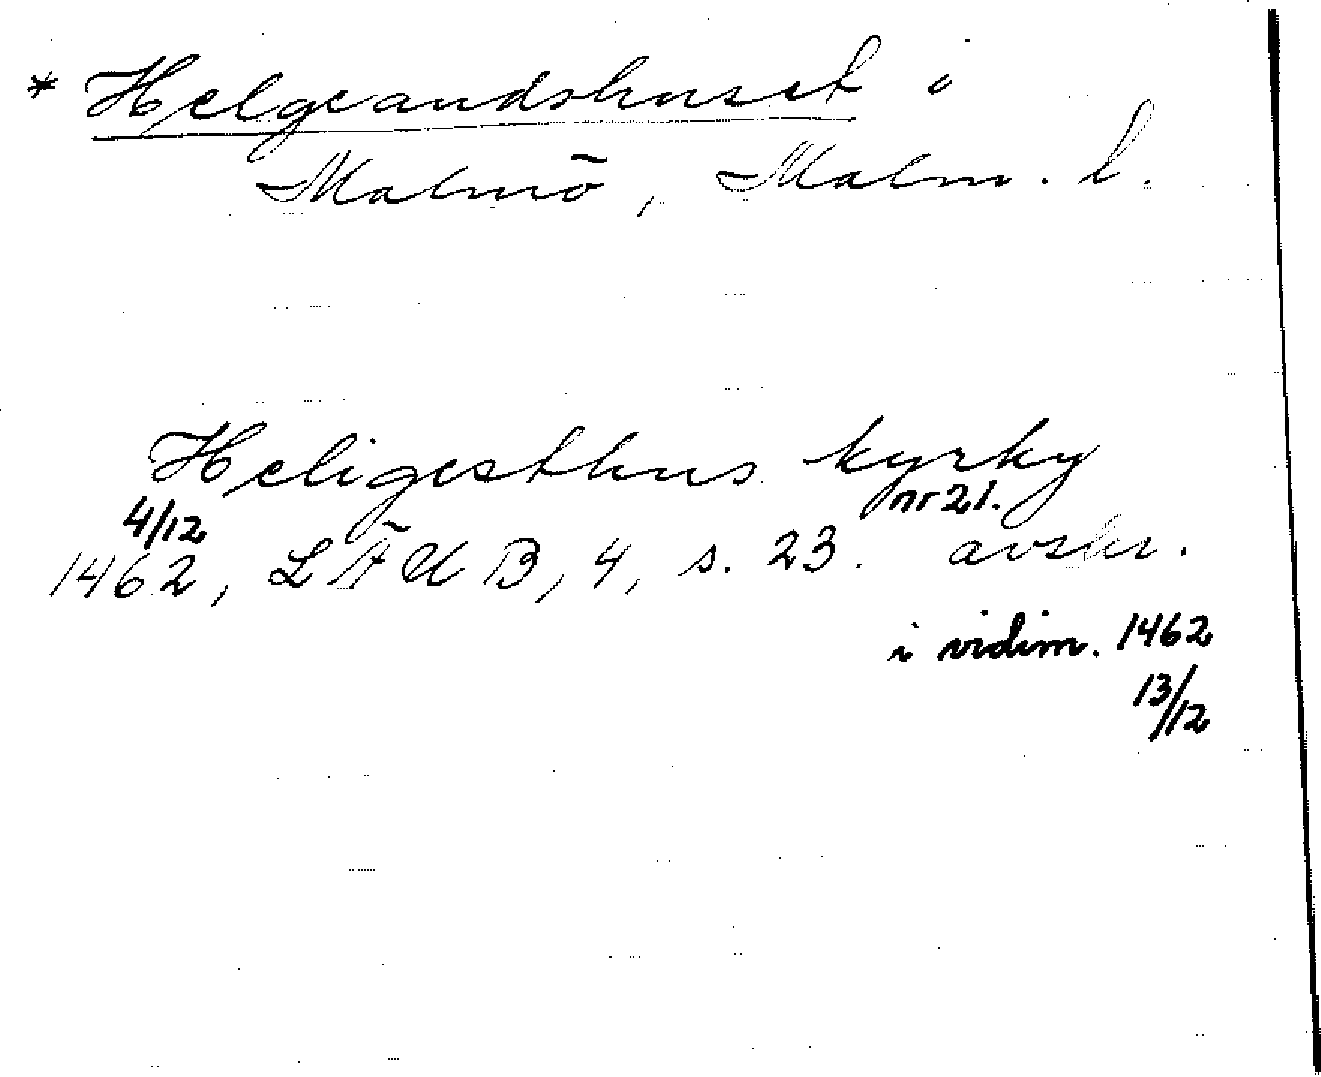 * Helgeandshuset i
Malmö, Malm. l.
Heligesthus kyrky
4/12 nr 21.
1462, LÄUB, 4, s. 23. avskr.
i vidim. 1462
13/12